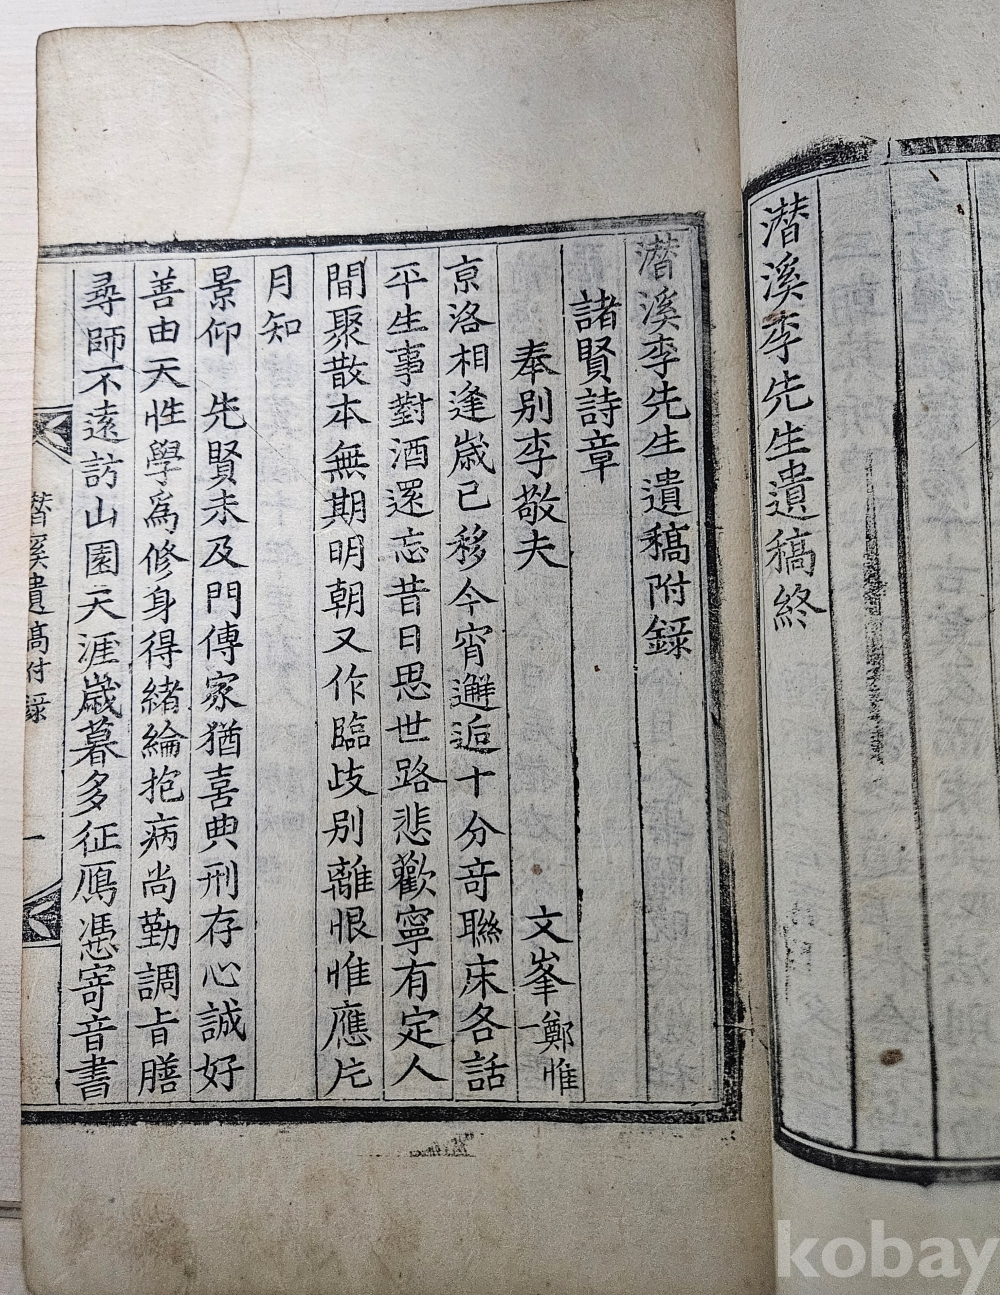 潛溪李先生遺稿終
潛溪李先生遺稿附錄
諸賢詩章
奉別李敬夫 文峯鄭惟一
京洛相逢歲已移今宵邂逅十分奇聯床各話
平生事對酒還忘昔日思世路悲歡寧有定人
間聚散本無期明朝又作臨歧別離恨惟應片
月知
景仰 先賢未及門傳家猶喜典刑存心誠好
善由天性學爲修身得緖綸抱病尚勤調旨膳
尋師不遠訪山園天涯歲暮多征鴈憑寄音書
潛溪遺稿付錄 一
kobay